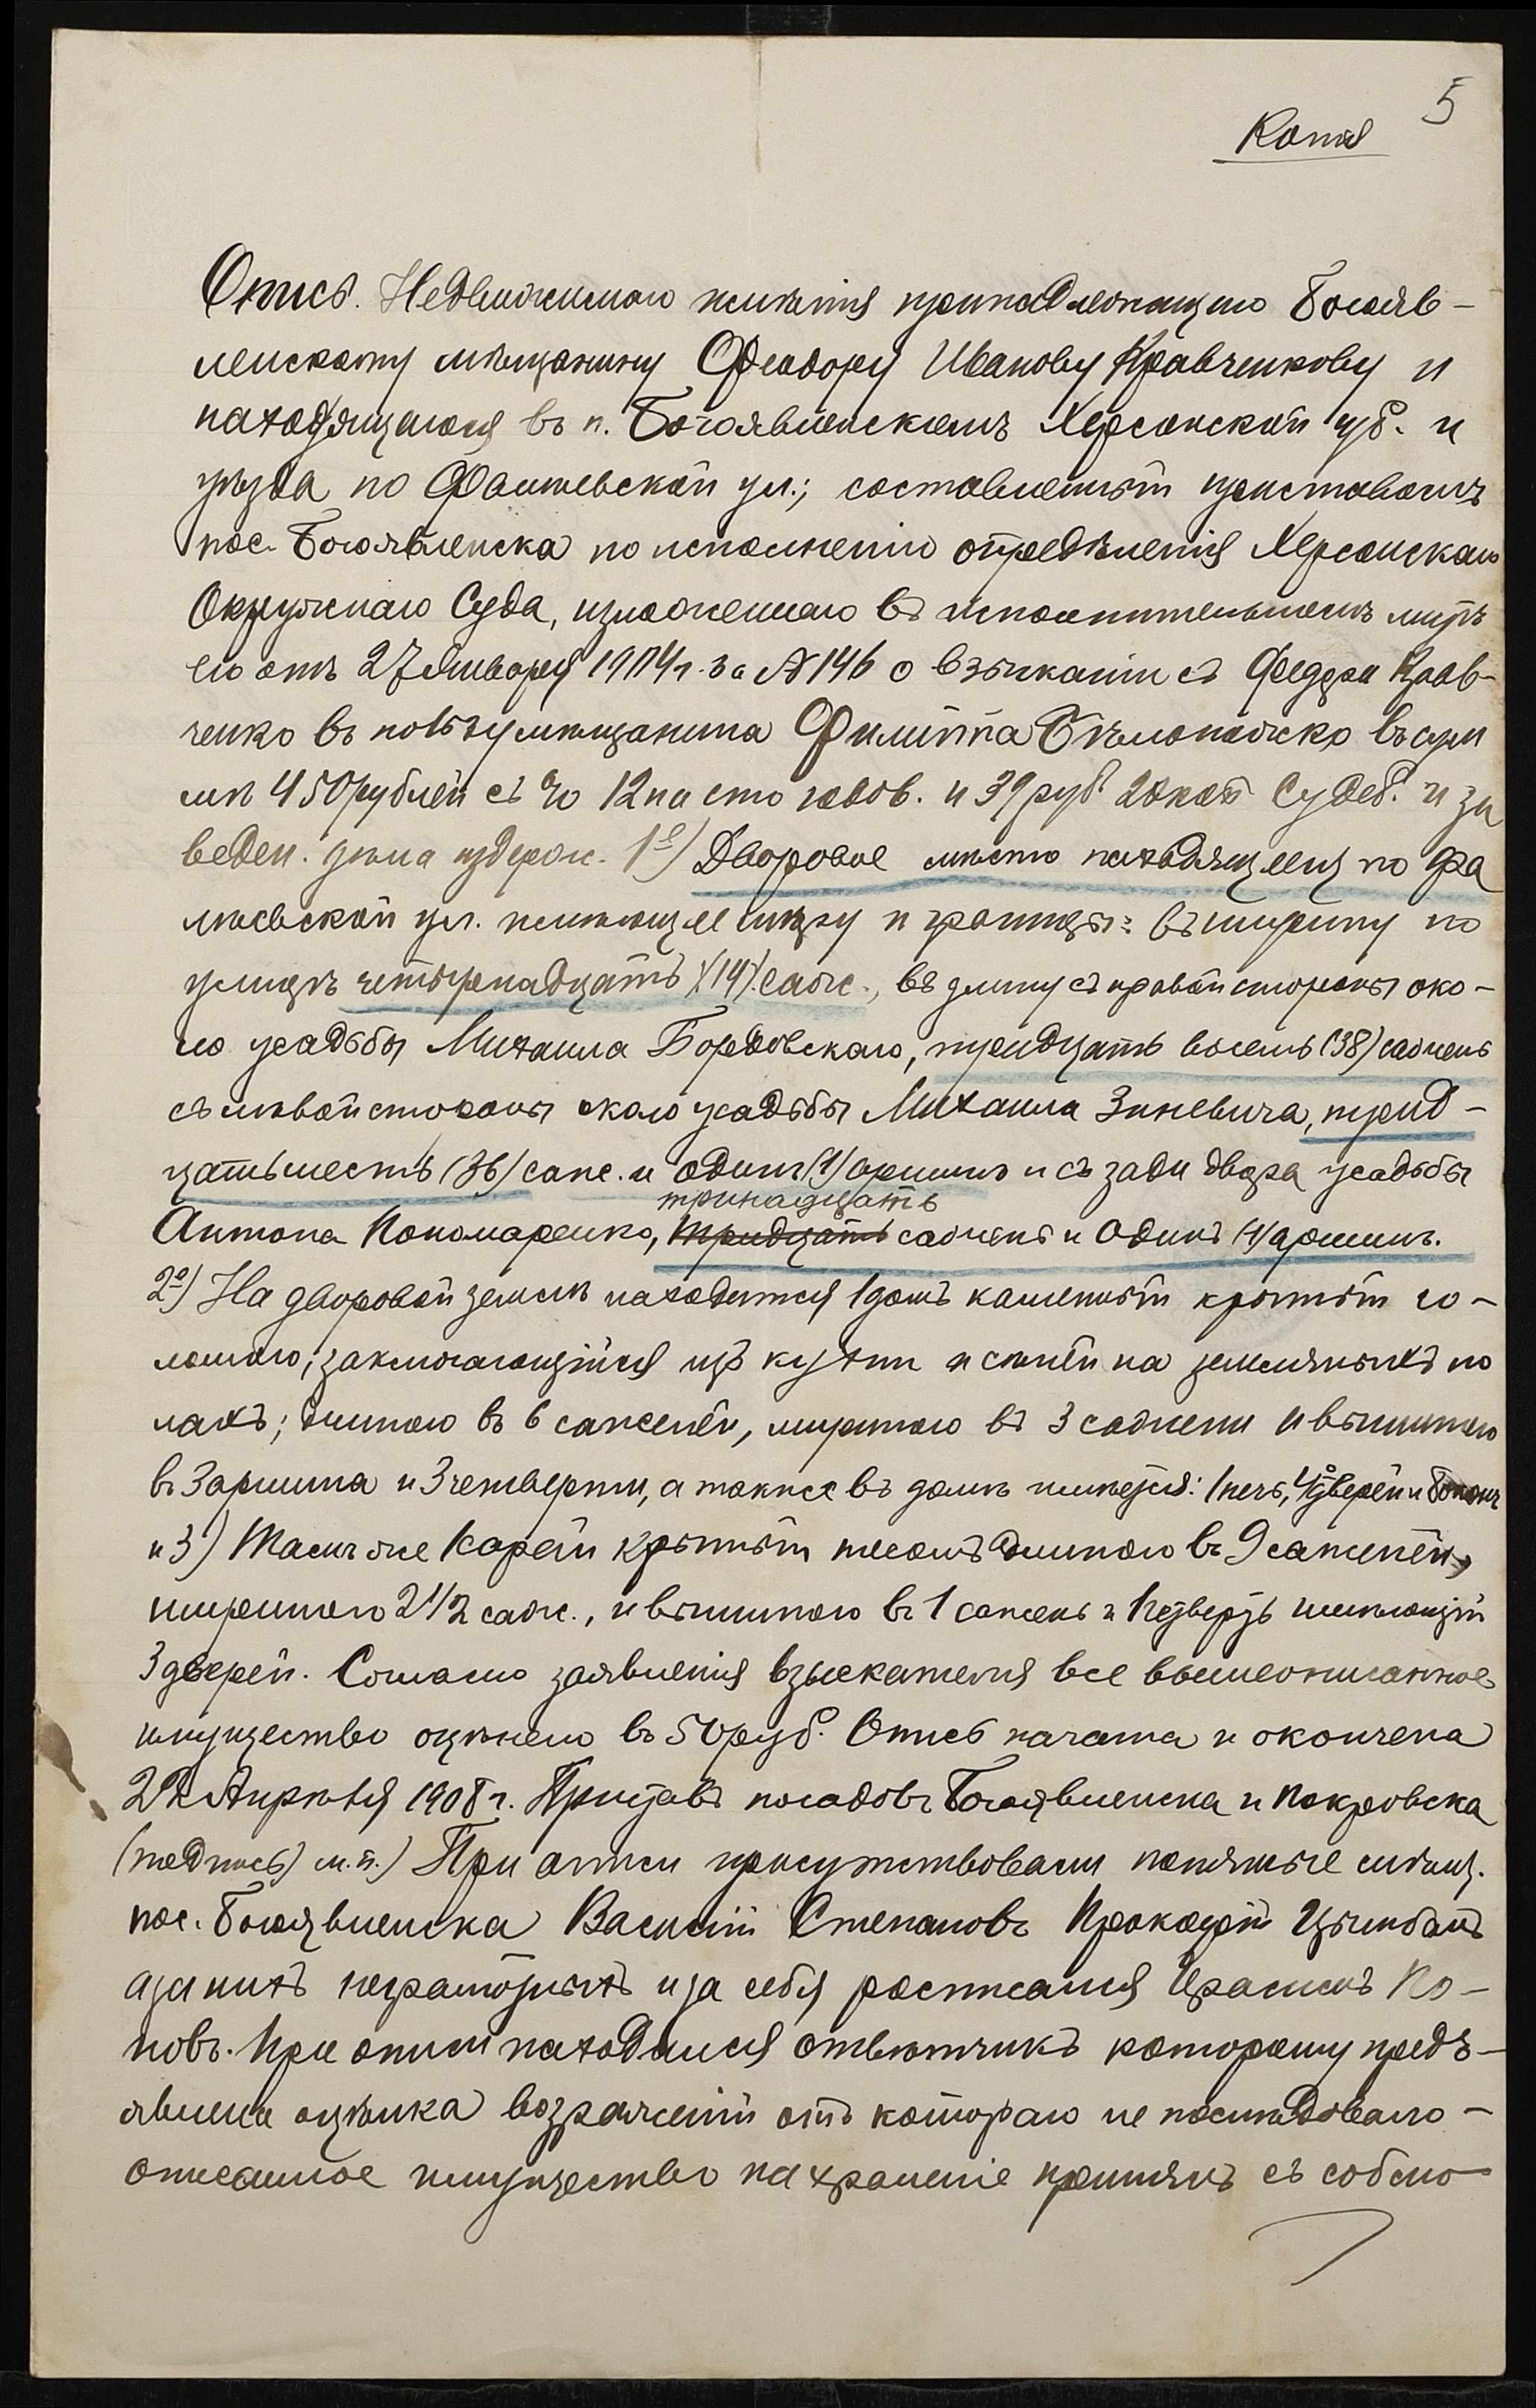 5
Копія
Опись. Недвижимаго имѣнія принадлежащаго Богояв-
ленскому мѣщанину Феодору Иванову Кравченкову и
находящагося въ п. Богоявленскомъ Херсонской губ. и
уѣзда по Фалѣевской ул.; составленный приставомъ
пос. Богоявленска по исполненію опредѣленія Херсонскаго
Окружнаго Суда, изложеннаго въ исполнительномъ листѣ
его отъ 27 Января 1904 г. за № 146 о взысканіи съ Федора Крав-
ченко въ пользу мѣщанина Филиппа Бѣлоножко въ сум
мѣ 450 рублей съ % 12 на сто годов. и 39 руб. 20 коп Судеб. и за
веден. дѣла издерж. 1º) Дворовое мѣсто находящееся по Фа
лѣевской ул. имѣющее мѣру и границы: въ ширину по
улицѣ четырнадцать (14) саж., въ длину съ правой стороны око-
ло усадьбы Михаила Бордовскаго, тридцать восемь (38) сажень
съ лѣвой стороны около усадьбы Михаила Зиневича, трид-
цать шесть (36) саж. и одинъ (1) аршинъ и съ зади двора усадьбы
тринадцать
Антона Пономаренко, тридцать сажень и Одинъ (1) аршинъ.
2º) На дворовой землѣ находится 1 домъ каменный крытый со-
ломою, заключающійся изъ кухни и сѣней на земляныхъ по
лахъ; длиною въ 6 саженей, шириною въ 3 сажени и вышиною
въ 3 аршина и 3 четверти, а также въ домѣ имѣется: 1 печь, 4 дверей и 8 оконъ
и 3) Тамъ же Сарай крытый тесомъ длиною въ 9 саженей,
шириною 2 1/2 саж., и вышиною въ 1 сажень и 1 четверть имѣющій
3 дверей. Согласно заявленія взыскателя все вышеописанное
имущество оцѣнено въ 50 руб. Опись начата и окончена
22 Апрѣля 1908 г. Приставъ посадовъ Богоявленска и Покровска
(подпись) м.п.) При описи присутствовали понятые мѣщ.
пос. Богоявленска Василій Степановъ Прокофій Цымбалъ
а за нихъ неграмотныхъ и за себя росписался Герасимъ По-
повъ. При описи находился отвѣтчикъ которому предъ-
явлена оцѣнка возраженій отъ котораго не послѣдовало-
описанное имущество на храненіе принялъ съ собст